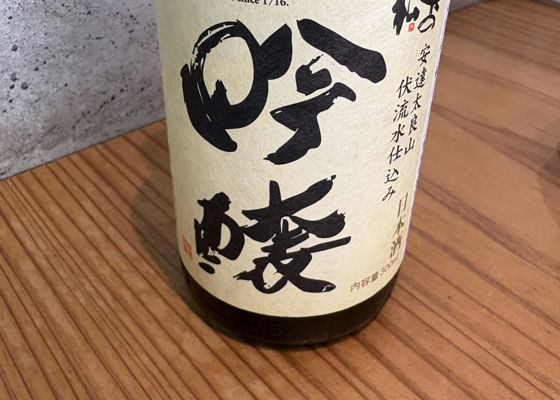 since 1716.
吟醸
の
松
安達太良山
伏流水仕込み
日本酒
内容量300ml